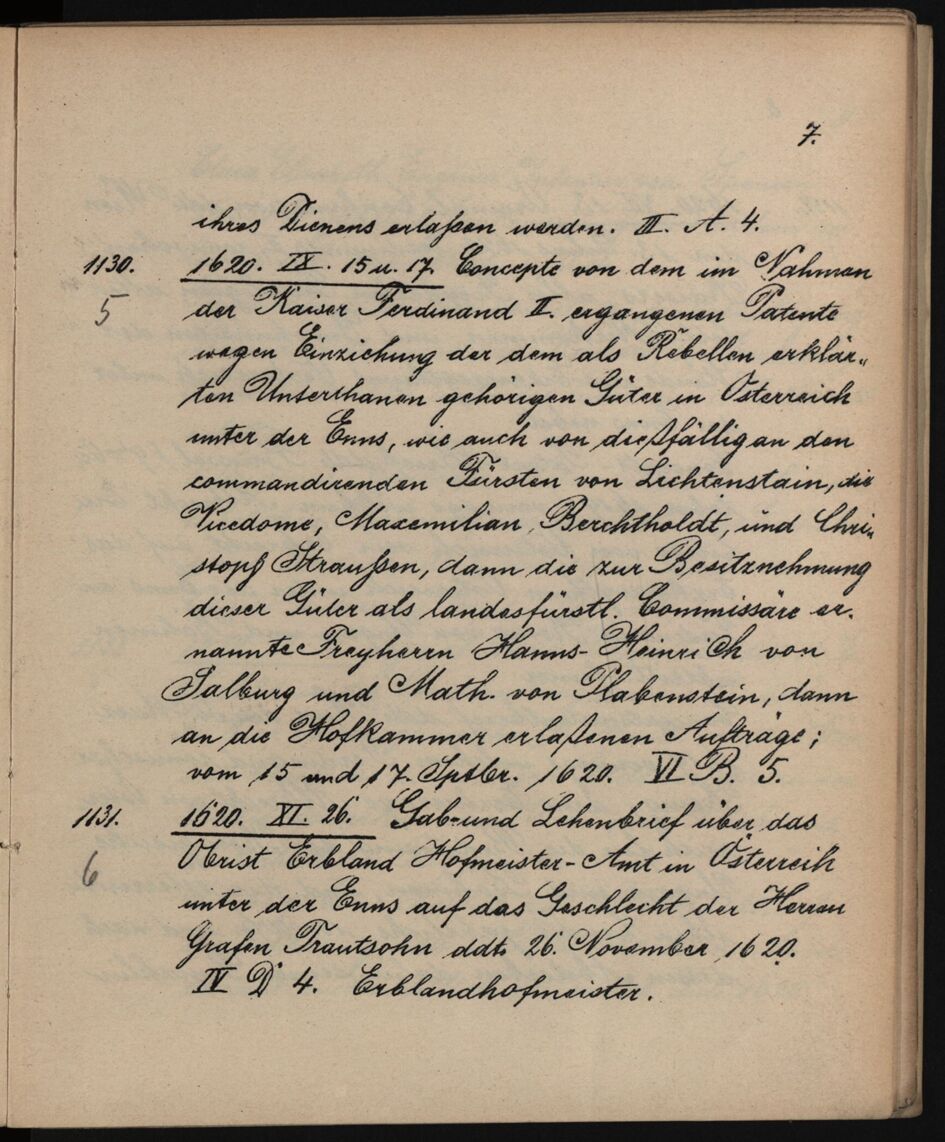 7.
ihres Dienens erlaßen werden. III. A. 4.
1130. 1620. IX. 15 u. 17. Concepte von dem im Nahmen
5 der Kaiser Ferdinand II. ergangenen Patente
wegen Einziehung der dem als Rebellen erklär„
ten Unterthanen gehörigen Güter in Österreich
unter der Enns, wie auch von dießfällig an den
commandirenden Fürsten von Lichtenstain, die
Vicedome, Maxemilian Berchtholdt, und Chri„
stoph Straußen, dann die zur Besitznehmung
dieser Güter als landesfürstl. Commissäre er„
nannte Freyherrn Hanns-Heinrich von
Salburg und Math. von Plabenstein, dann
an die Hofkammer erlaßenen Aufträge;
vom 15 und 17. Sptbr. 1620. VI B. 5.
1131. 1620. XI. 26. Gab-und Lehenbrief über das
6 Obrist Erbland Hofmeister-Amt in Österreih
unter der Enns auf das Geschlecht der Herren
Grafen Trautsohn ddt. 26. November 1620.
IV D 4. Erblandhofmeister.